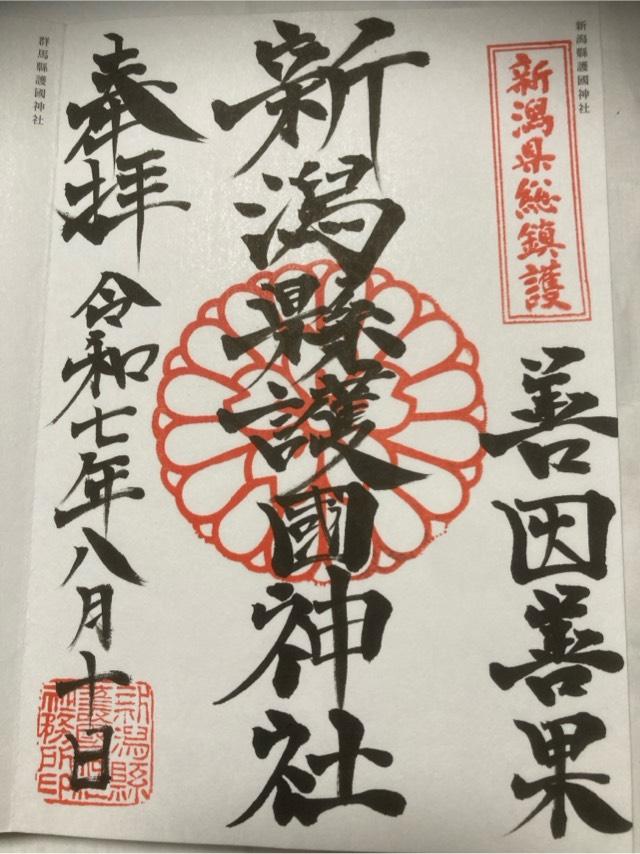 新潟縣護國神社
新潟県総鎮護
善因善果
新潟縣護國神社
奉拝
令和七年八月十日
新潟縣
護國神社
社務所印
群馬縣護國神社